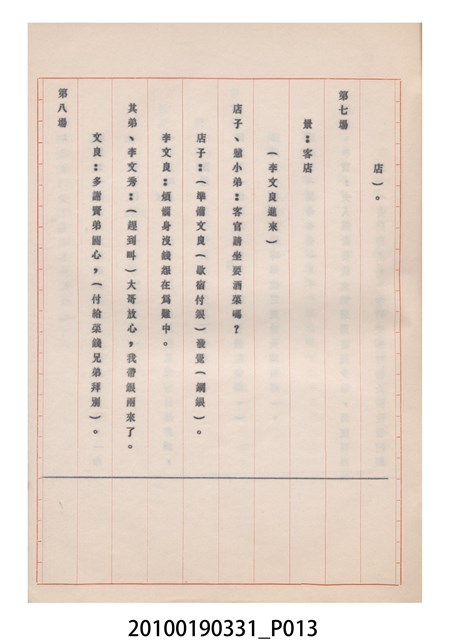 店）。
第七場
景：客店
（李文良進來）
店子、憨小弟：客官請坐要酒菜嗎？
店子：（準備文良（歇宿付銀）發覺（鋼銀）。
李文良：煩惱身沒錢銀在為難中。
其弟、李文秀：（趕到叫）大哥放心，我帶銀兩來了。
文良：多謝賢弟關心，（付給菜錢兄弟拜別）。
第八場
20100190331_P013